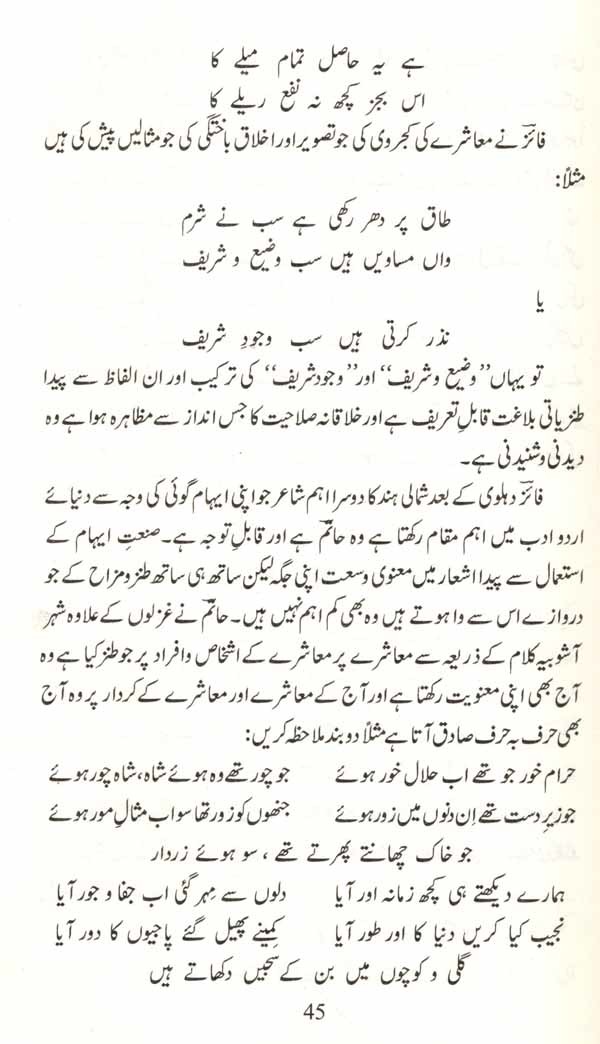 ہے یہ حاصل تمام میلے کا
اس بجز کچھ نہ نفع ریلے کا
فائزؔ نے معاشرے کی کجروی کی جو تصویر اور اخلاق باختگی کی جو مثالیں پیش کی ہیں
مثلاً:
طاق پر دھر رکھی ہے سب نے شرم
واں مساویں ہیں سب وضیع و شریف
یا
نذر کرتی ہیں سب وجودِ شریف
تو یہاں ’’وضیع و شریف‘‘ اور ’’وجود شریف‘‘ کی ترکیب اور ان الفاظ سے پیدا
طنزیاتی بلاغت قابلِ تعریف ہے اور خلاقانہ صلاحیت کا جس انداز سے مظاہرہ ہوا ہے وہ
دیدنی و شنیدنی ہے۔
فائزؔ دہلوی کے بعد شمالی ہند کا دوسرا اہم شاعر جو اپنی ایہام گوئی کی وجہ سے دنیائے
اردو ادب میں اہم مقام رکھتا ہے وہ حاتمؔ ہے اور قابلِ توجہ ہے۔ صنعتِ ایہام کے
استعمال سے پیدا اشعار میں معنوی وسعت اپنی جگہ لیکن ساتھ ہی ساتھ طنز و مزاح کے جو
دروازے اس سے وا ہوتے ہیں وہ بھی کم اہم نہیں ہیں۔ حاتمؔ نے غزلوں کے علاوہ شہر
آشوبیہ کلام کے ذریعہ سے معاشرے پر معاشرے کے اشخاص و افراد پر جو طنز کیا ہے وہ
آج بھی اپنی معنویت رکھتا ہے اور آج کے معاشرے اور معاشرے کے کردار پر وہ آج
بھی حرف بہ حرف صادق آتا ہے مثلاً دو بند ملاحظہ کریں:
حرام خور جو تھے اب حلال خور ہوئے جو چور تھے وہ ہوئے شاہ، شاہ چور ہوئے
جو زیرِ دست تھے اِن دنوں میں زور ہوئے جنھوں کو زور تھا سو اب مثالِ مور ہوئے
جو خاک چھانتے پھرتے تھے ، سو ہوئے زردار
ہمارے دیکھتے ہی کچھ زمانہ اور آیا دلوں سے مِہر گئی اب جفا و جور آیا
نجیب کیا کریں دنیا کا اور طور آیا کمینے پھیل گئے پاجیوں کا دور آیا
گلی و کوچوں میں بن کے سجیں دکھاتے ہیں
45